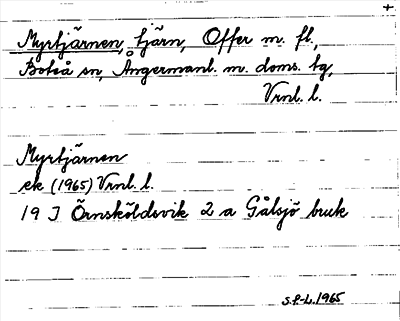 +
Myrtjärnen, tjärn, Offer m. fl.,
Boteå sn, Ångermanl. m. doms. tg,
Vrnl. l.
Myrtjärnen
ek (1965) Vrnl. l.
19 J Örnsköldsvik 2 a Gålsjö bruk
S.P-L. 1965